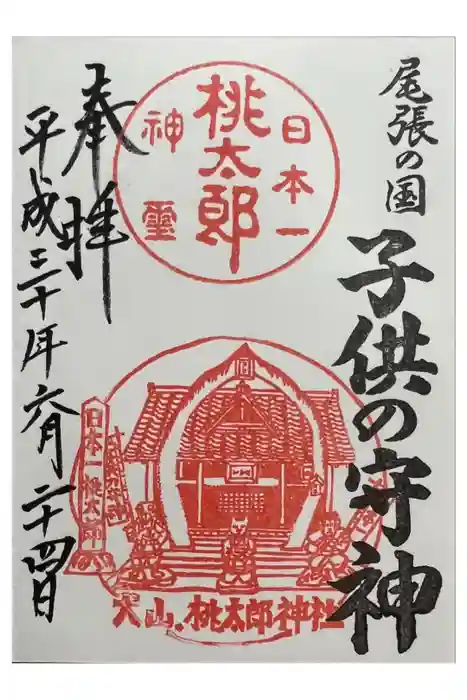 尾張の国
子供の守神
日本一
桃太郎
神霊
奉拝
平成三十年六月二十四日
日本一桃太郎
犬山.桃太郎神社